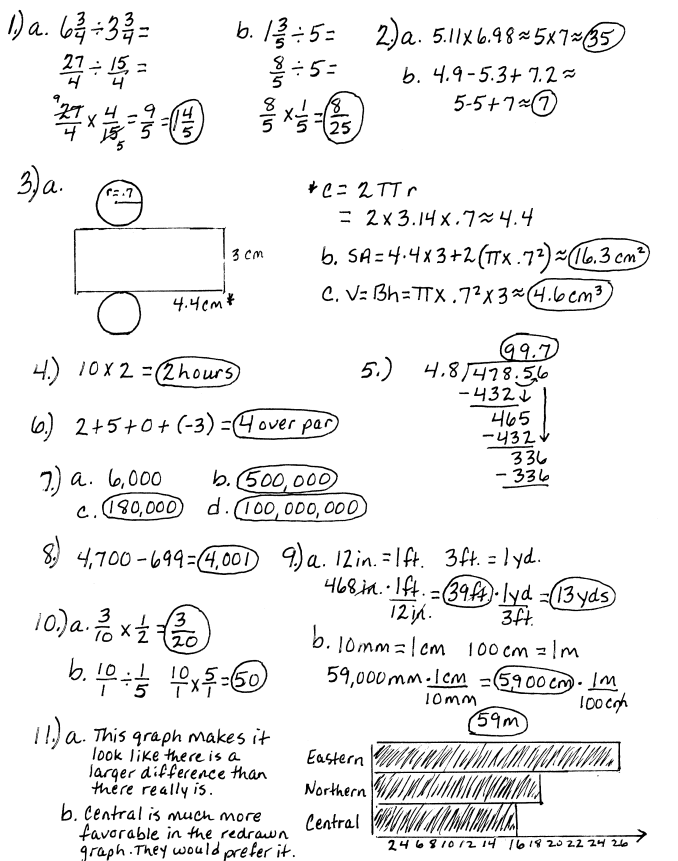 1.) a. 6 3/4 ÷ 3 3/4 =
27/4 ÷ 15/4 =
9 27/4 x 4/15 5 = 9/5 = 1 4/5
b. 1 3/5 ÷ 5 =
8/5 ÷ 5 =
8/5 x 1/5 = 8/25
2.) a. 5.11 x 6.98 ≈ 5 x 7 ≈ 35
b. 4.9 - 5.3 + 7.2 ≈
5 - 5 + 7 ≈ 7
3.) a.
r = .7
3 cm
4.4cm *
* C = 2πr
= 2 x 3.14 x .7 ≈ 4.4
b. SA = 4.4 x 3 + 2(π x .7²) ≈ 16.3 cm²
c. V = Bh = π x .7² x 3 ≈ 4.6 cm³
4.) 10 x 2 = 2 hours
5.) 99.7
4.8 478.56
-432
465
-432
336
-336
6.) 2 + 5 + 0 + (-3) = 4 over par
7.) a. 6,000 b. 500,000
c. 180,000 d. 100,000,000
8.) 4,700 - 699 = 4,001
9.) a. 12in. = 1ft. 3ft. = 1yd.
468in. · 1ft./12in. = 39ft. · 1yd/3ft. = 13yds
b. 10mm = 1cm 100cm = 1m
59,000mm · 1cm/10mm = 5,900cm · 1m/100cm
59m
10.) a. 3/10 x 1/2 = 3/20
b. 10/1 ÷ 1/5 10/1 x 5/1 = 50
11.) a. This graph makes it
look like there is a
larger difference than
there really is.
b. Central is much more
favorable in the redrawn
graph. They would prefer it.
Eastern
Northern
Central
2 4 6 8 10 12 14 16 18 20 22 24 26